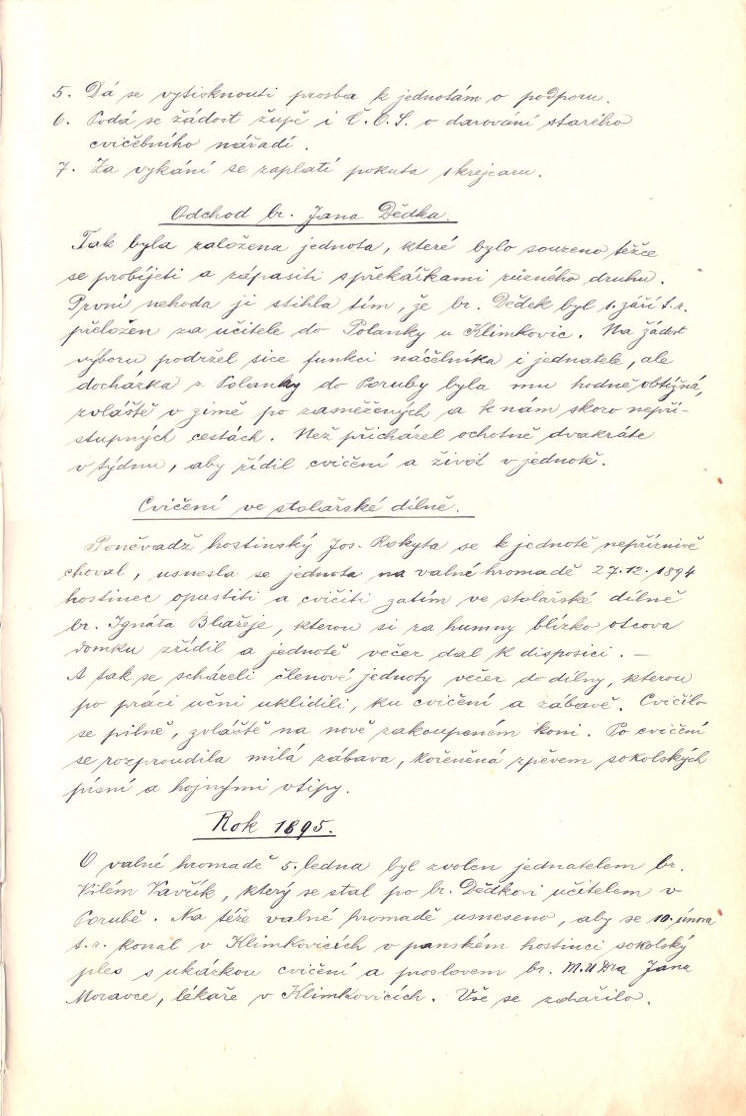 5. Dá se vytisknouti prosba k jednotám o podporu.
6. Podá se žádost župě i Č.O.S. o darování starého
cvičebního nářadí.
7. Za vykání se zaplatí pokuta 1 krejcaru.
Odchod br. Jana Dědka.
Tak byla založena jednota, které bylo souzeno těžce
se probíjeti a zápasiti s překážkami různého druhu.
První nehoda ji stihla tím, že br. Dědek byl 1. září t.r.
přeložen za učitele do Polanky u Klimkovic. Na žádost
výboru podržel sice funkci náčelníka i jednatele, ale
docházka z Polanky do Poruby byla mu hodně obtížná,
zvláště v zimě po zasněžených a k nám skoro nepří-
stupných cestách. Než přicházel ochotně dvakráte
v týdnu, aby řídil cvičení a život v jednotě.
Cvičení ve stolařské dílně.
Poněvadž hostinský Jos. Rokyta se k jednotě nepříznivě
choval, usnesla se jednota na valné hromadě 27.12.1894
hostinec opustiti a cvičiti zatím ve stolařské dílně
br. Ignáta Blažeje, kterou si za humny blízko otcova
domku zřídil a jednotě večer dal k disposici. —
A tak se scházeli členové jednoty večer do dílny, kterou
po práci učni uklidili, ku cvičení a zábavě. Cvičilo
se pilně, zvláště na nově zakoupeném koni. Po cvičení
se rozproudila milá zábava, kořeněná zpěvem sokolských
písní a hojnými vtipy.
Rok 1895.
O valné hromadě 5. ledna byl zvolen jednatelem br.
Vilém Vavřík, který se stal po br. Dědkovi učitelem v
Porubě. Na téže valné hromadě usneseno, aby se 10. února
t.r. konal v Klimkovicích v panském hostinci sokolský
ples s ukázkou cvičení a proslovem br. M.U Dra Jana
Moravce, lékaře v Klimkovicích. Vše se zdařilo.